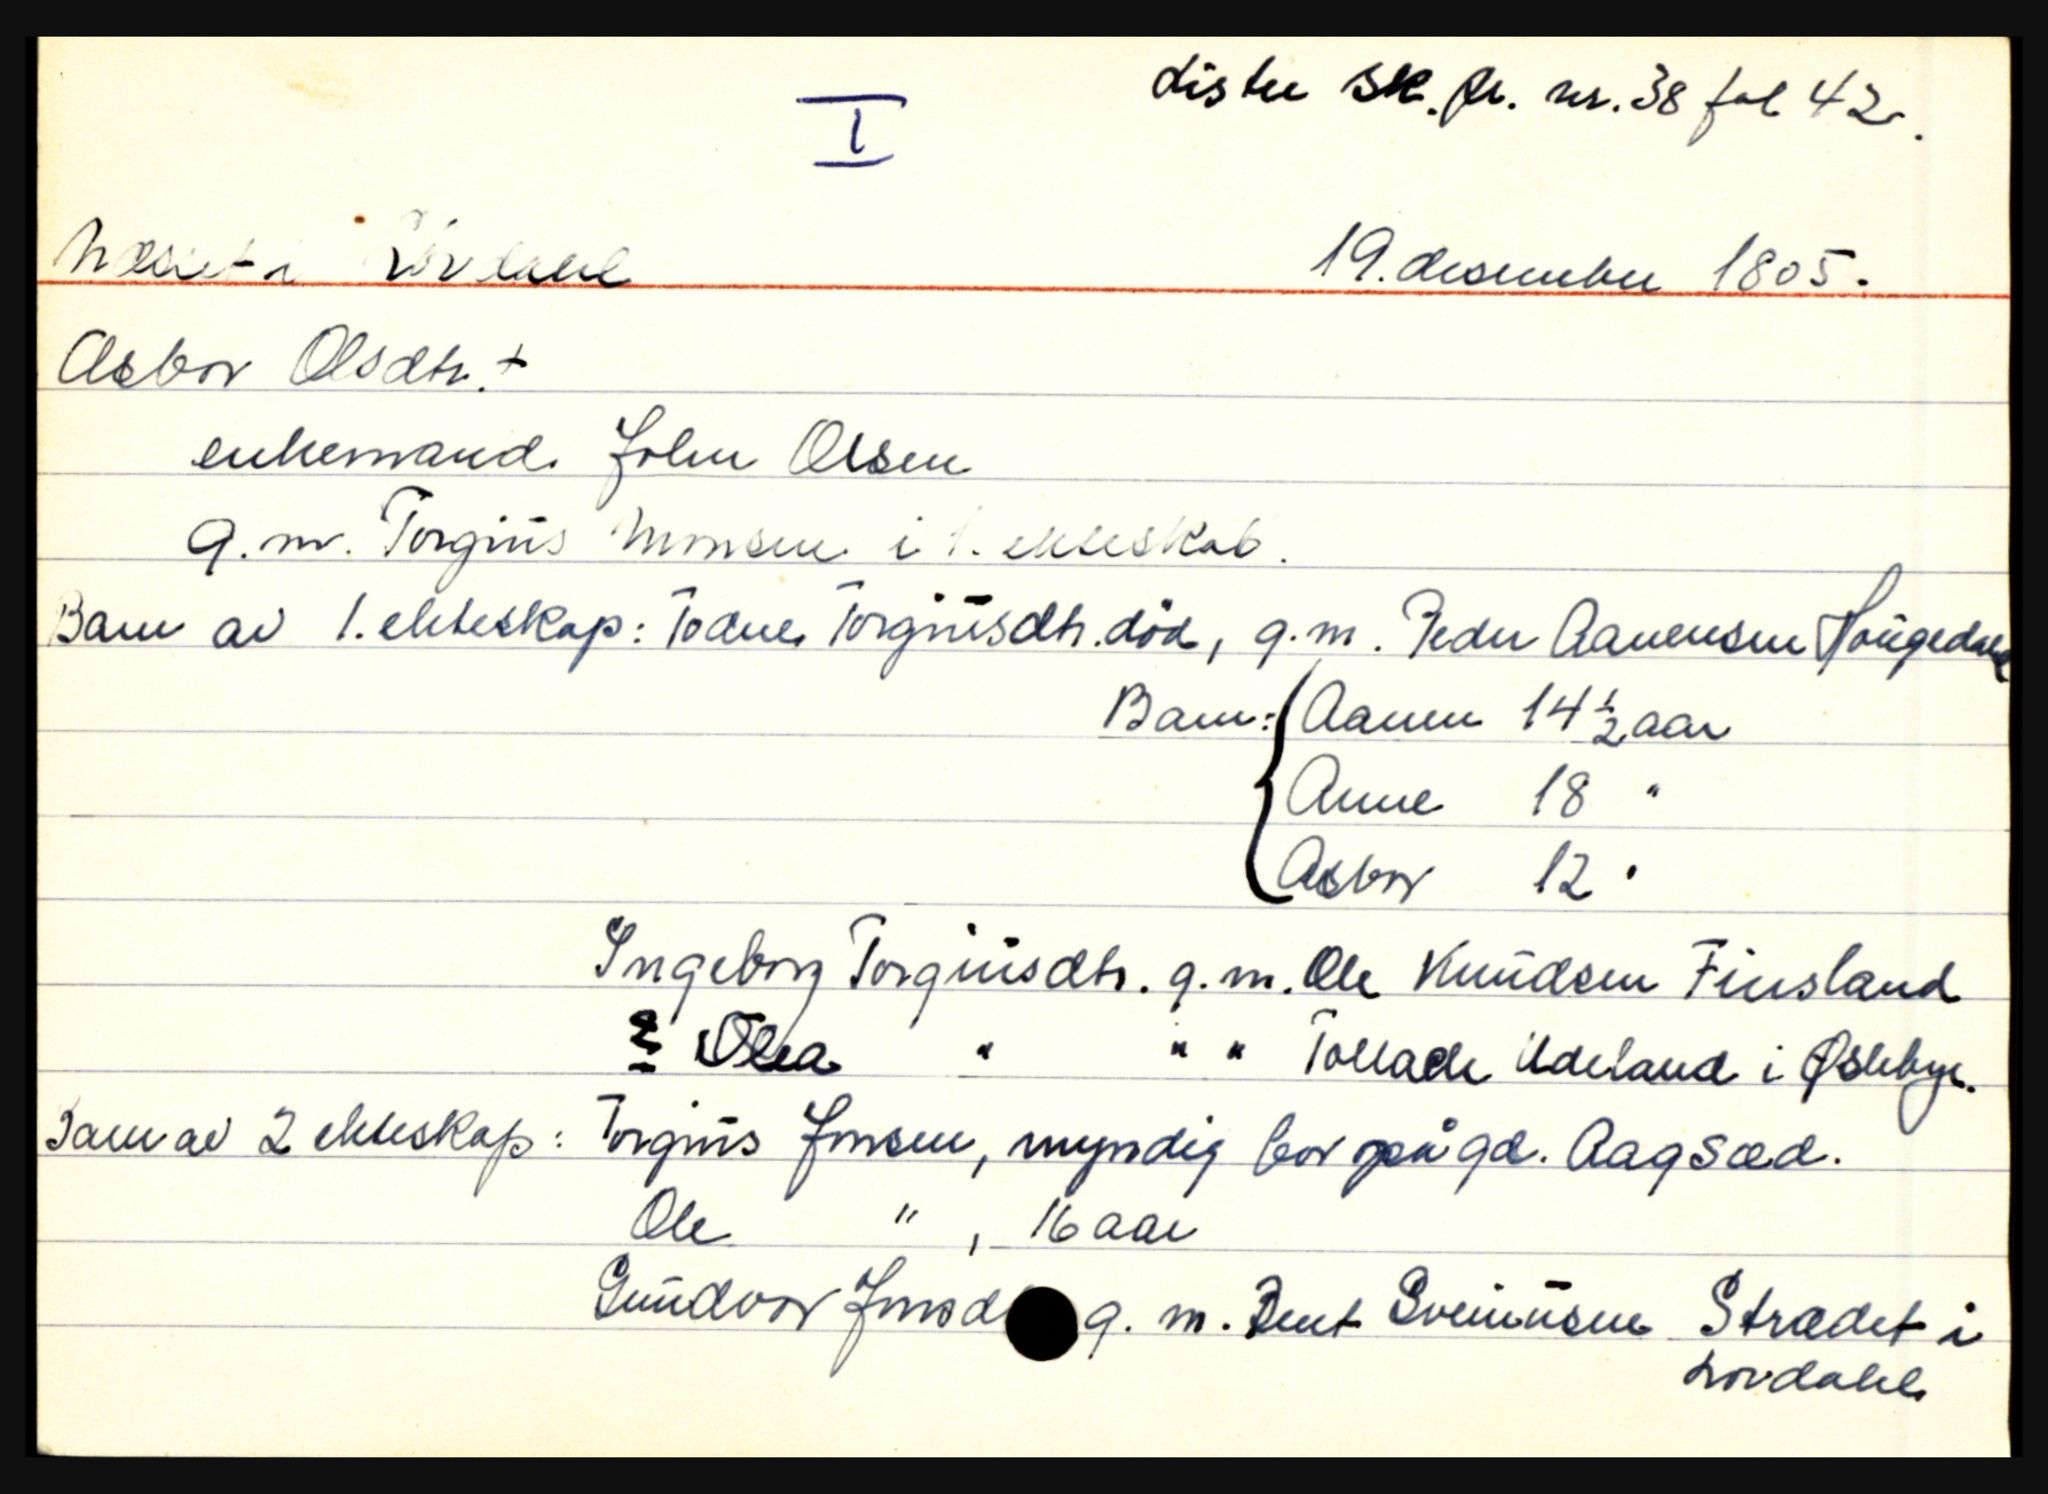 Lister Sk. pr. nr. 38 fol 42.
I
Næset i Lövdahl 19. desember 1805.
Asbor Olsdtr. +
enkemand John Olsen
g. m. Torgius Monsen i 1. ekteskab.
Barn av 1. ekteskap: Todne Torgiusdtr. död, g. m. Peder Aanensen Hougedahl
Barn: Aanen 14 1/2 aar
Anne 18 "
Asbor 12 "
Ingeborg Torgiusdtr. g. m. Ole Knudsen Finsland
Thea " " " Tollach Udeland i Øslebye.
Barn av 2 ekteskap: Torgius Jonsen, myndig bor på gd. Aagsæd.
Ole " , 16 aar
Gundvor Jonsd g. m. Bent Sveinusen Strædet i
Lovdahl